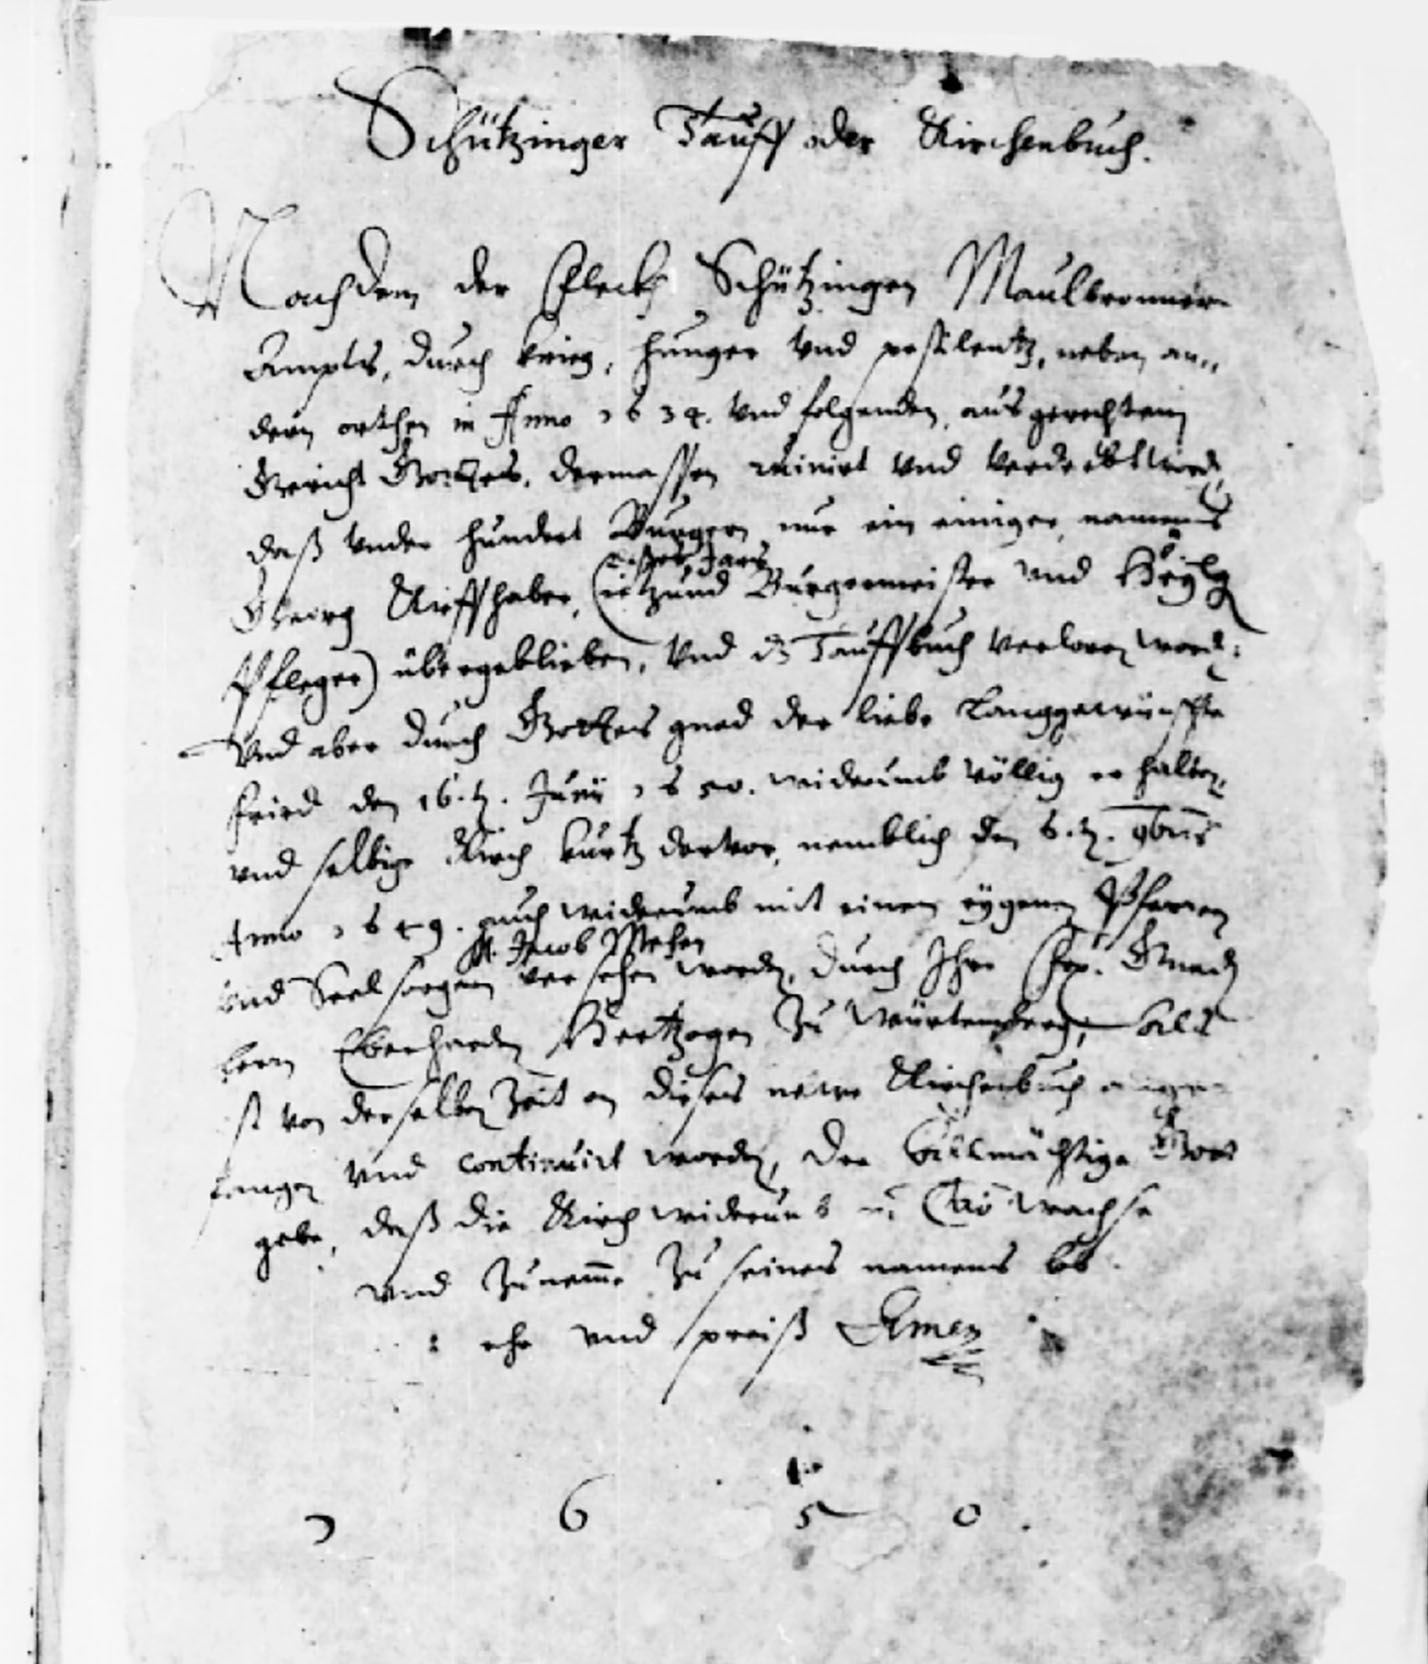 Schützinger Tauff oder Kirchenbuch.
Nachdem der Fleckh Schützingen Maulbronner
Ampts, durch krieg, hunger vnd pestilentz, neben an„
dern orthen in Anno 1634. vnd folgenden, aus gerechtem
Gericht Gottes, dermassen ruinirt vnd verderbt word,
daß vnder hundert Burgern nur ein einiger, namens
dises Jars
Georg Kieffhaber, (ietzund Burgermeister vnd Heylg
Pfleger) übergeblieben, vnd dz Tauffbuch verloren word:
Vnd aber durch Gottes gnad der liebe langgewünschte
fried den 16.t. Junii 1650. widerumb völlig erhalten,
vnd selbige Kirch kurtz darvor, nemblich den 6.t. 9bris
Anno 1649. auch widerumb mit einem eygenen Pfarrer
M. Jacob
vnd Seelsorgern versehen worden, durch Ihr Frl. Gnad
herrn Eberharden Hertzogen zu Würtemberg, Als
ist von derselben Zeit an dieses newe Kirchenbuch
fangen vnd continuirt worden, der Allmächtige Gott
gebe, daß die Kirch widerumb in Chro wachse
vnd zuneme zu seines namens lob.
ehr vnd preiß Amen
1 6 5 0.